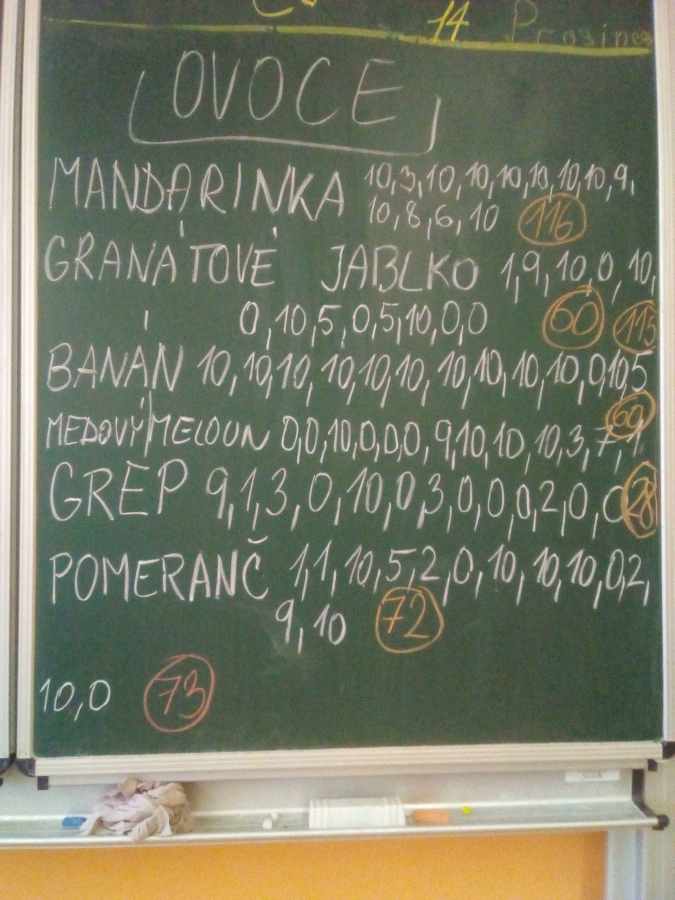 14 Prosinec
OVOCE
MANDARINKA 10,3,10,10,10,10,10,10,9,
10,8,6,10 116
GRANÁTOVÉ JABLKO 1,9,10,0,10,
0,10,5,0,5,10,0,0 60 115
BANÁN 10,10,10,10,10,10,10,10,10,10,0,10,5
MEDOVÝ MELOUN 0,0,10,0,0,0,9,10,10,10,3,7,1 60
GREP 9,1,3,0,10,0,3,0,0,0,2,0,0 28
POMERANČ 1,1,10,5,2,0,10,10,10,0,2,
9,10 72
10,0 73